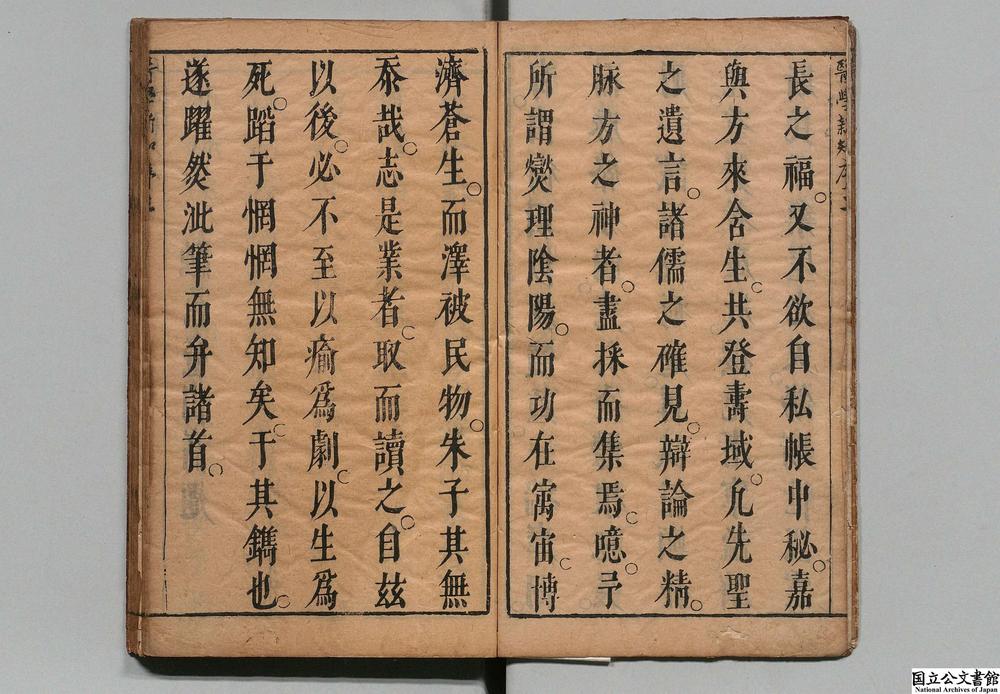 長之福。又不欲自私帳中秘。嘉
與方來含生。共登壽域。凢先聖
之遺言。諸儒之確見。辯論之精。
脉方之神者。盡採而集焉。噫。予
所謂爕理陰陽。而功在寓宙。博
濟蒼生。而澤被民物。朱子其無
忝哉。志是業者。取而讀之。自玆
以後。必不至以瘉爲劇。以生爲
死。蹈于惘惘無知矣。于其鐫也。
遂躍然泚筆而弁諸首。
国立公文書館
National Archives of Japan